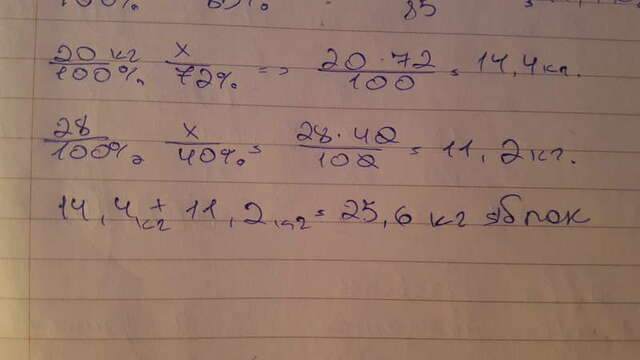 20 кг/100% = x/72% => 20·72/100 = 14,4 кг.
28/100% = x/40% = 28·40/100 = 11,2 кг.
14,4 кг + 11,2 кг = 25,6 кг яблок